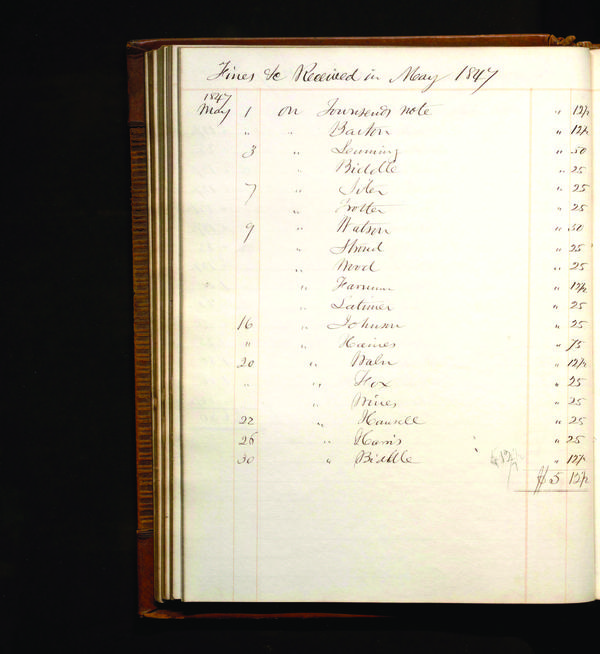 Fines &c Received in May 1847
1847
May 1 on Townsends note " 12½
" " Barton " 12½
3 " Leuming " 50
" Biddle " 25
7 " Siter " 25
" Trotter " 25
9 " Watson " 50
" Stroud " 25
" Wood " 25
" Farnum " 12½
" Latimer " 25
16 " Johnson " 25
" " Haines " 75
20 " Baln " 12½
" " Fox " 25
" Wines " 25
22 " Hansell " 25
26 " Harris " 25
30 " Biddle " 12½
$5 12½